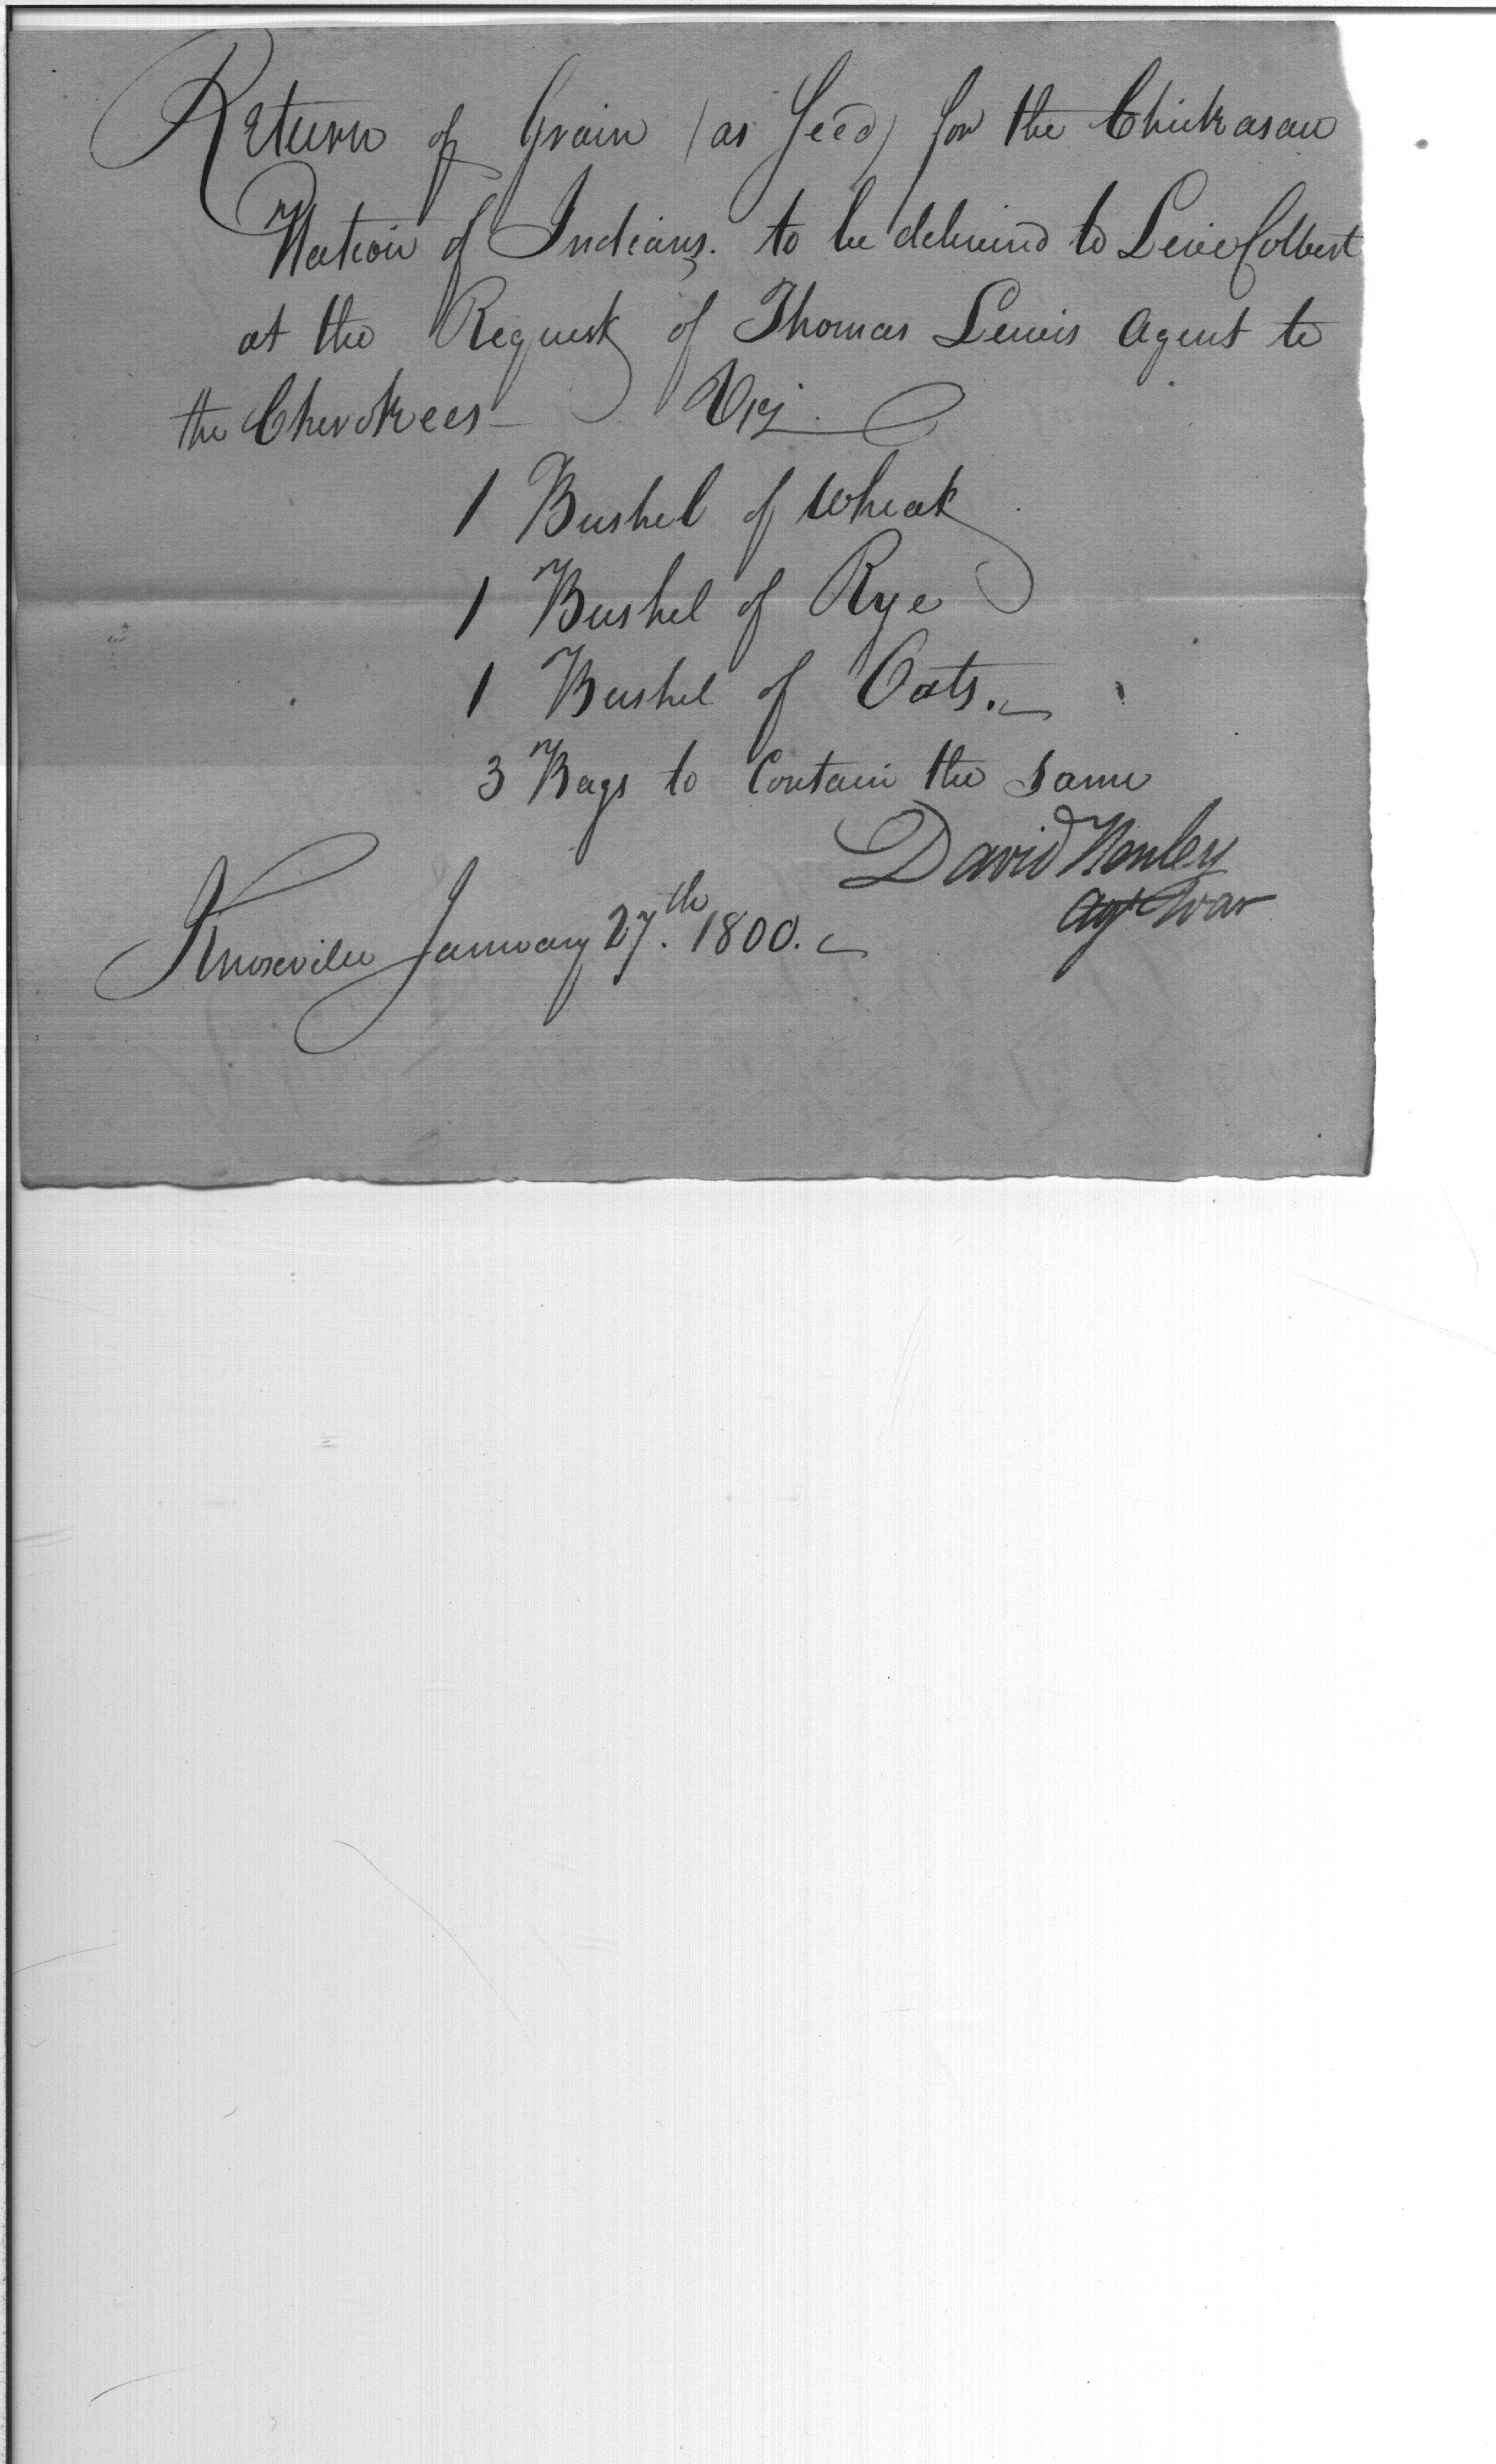 Return of Grain (as Seed) for the Chickasaw
Nation of Indians. to be delivered to Levie Colbert
at the Request of Thomas Lewis Agent to
the Cherokees— Viz.
1 Bushel of Wheat
1 Bushel of Rye
1 Bushel of Oats.
3 Bags to Contain the Same
David Henley
Agt War
Knoxville January 27th. 1800.